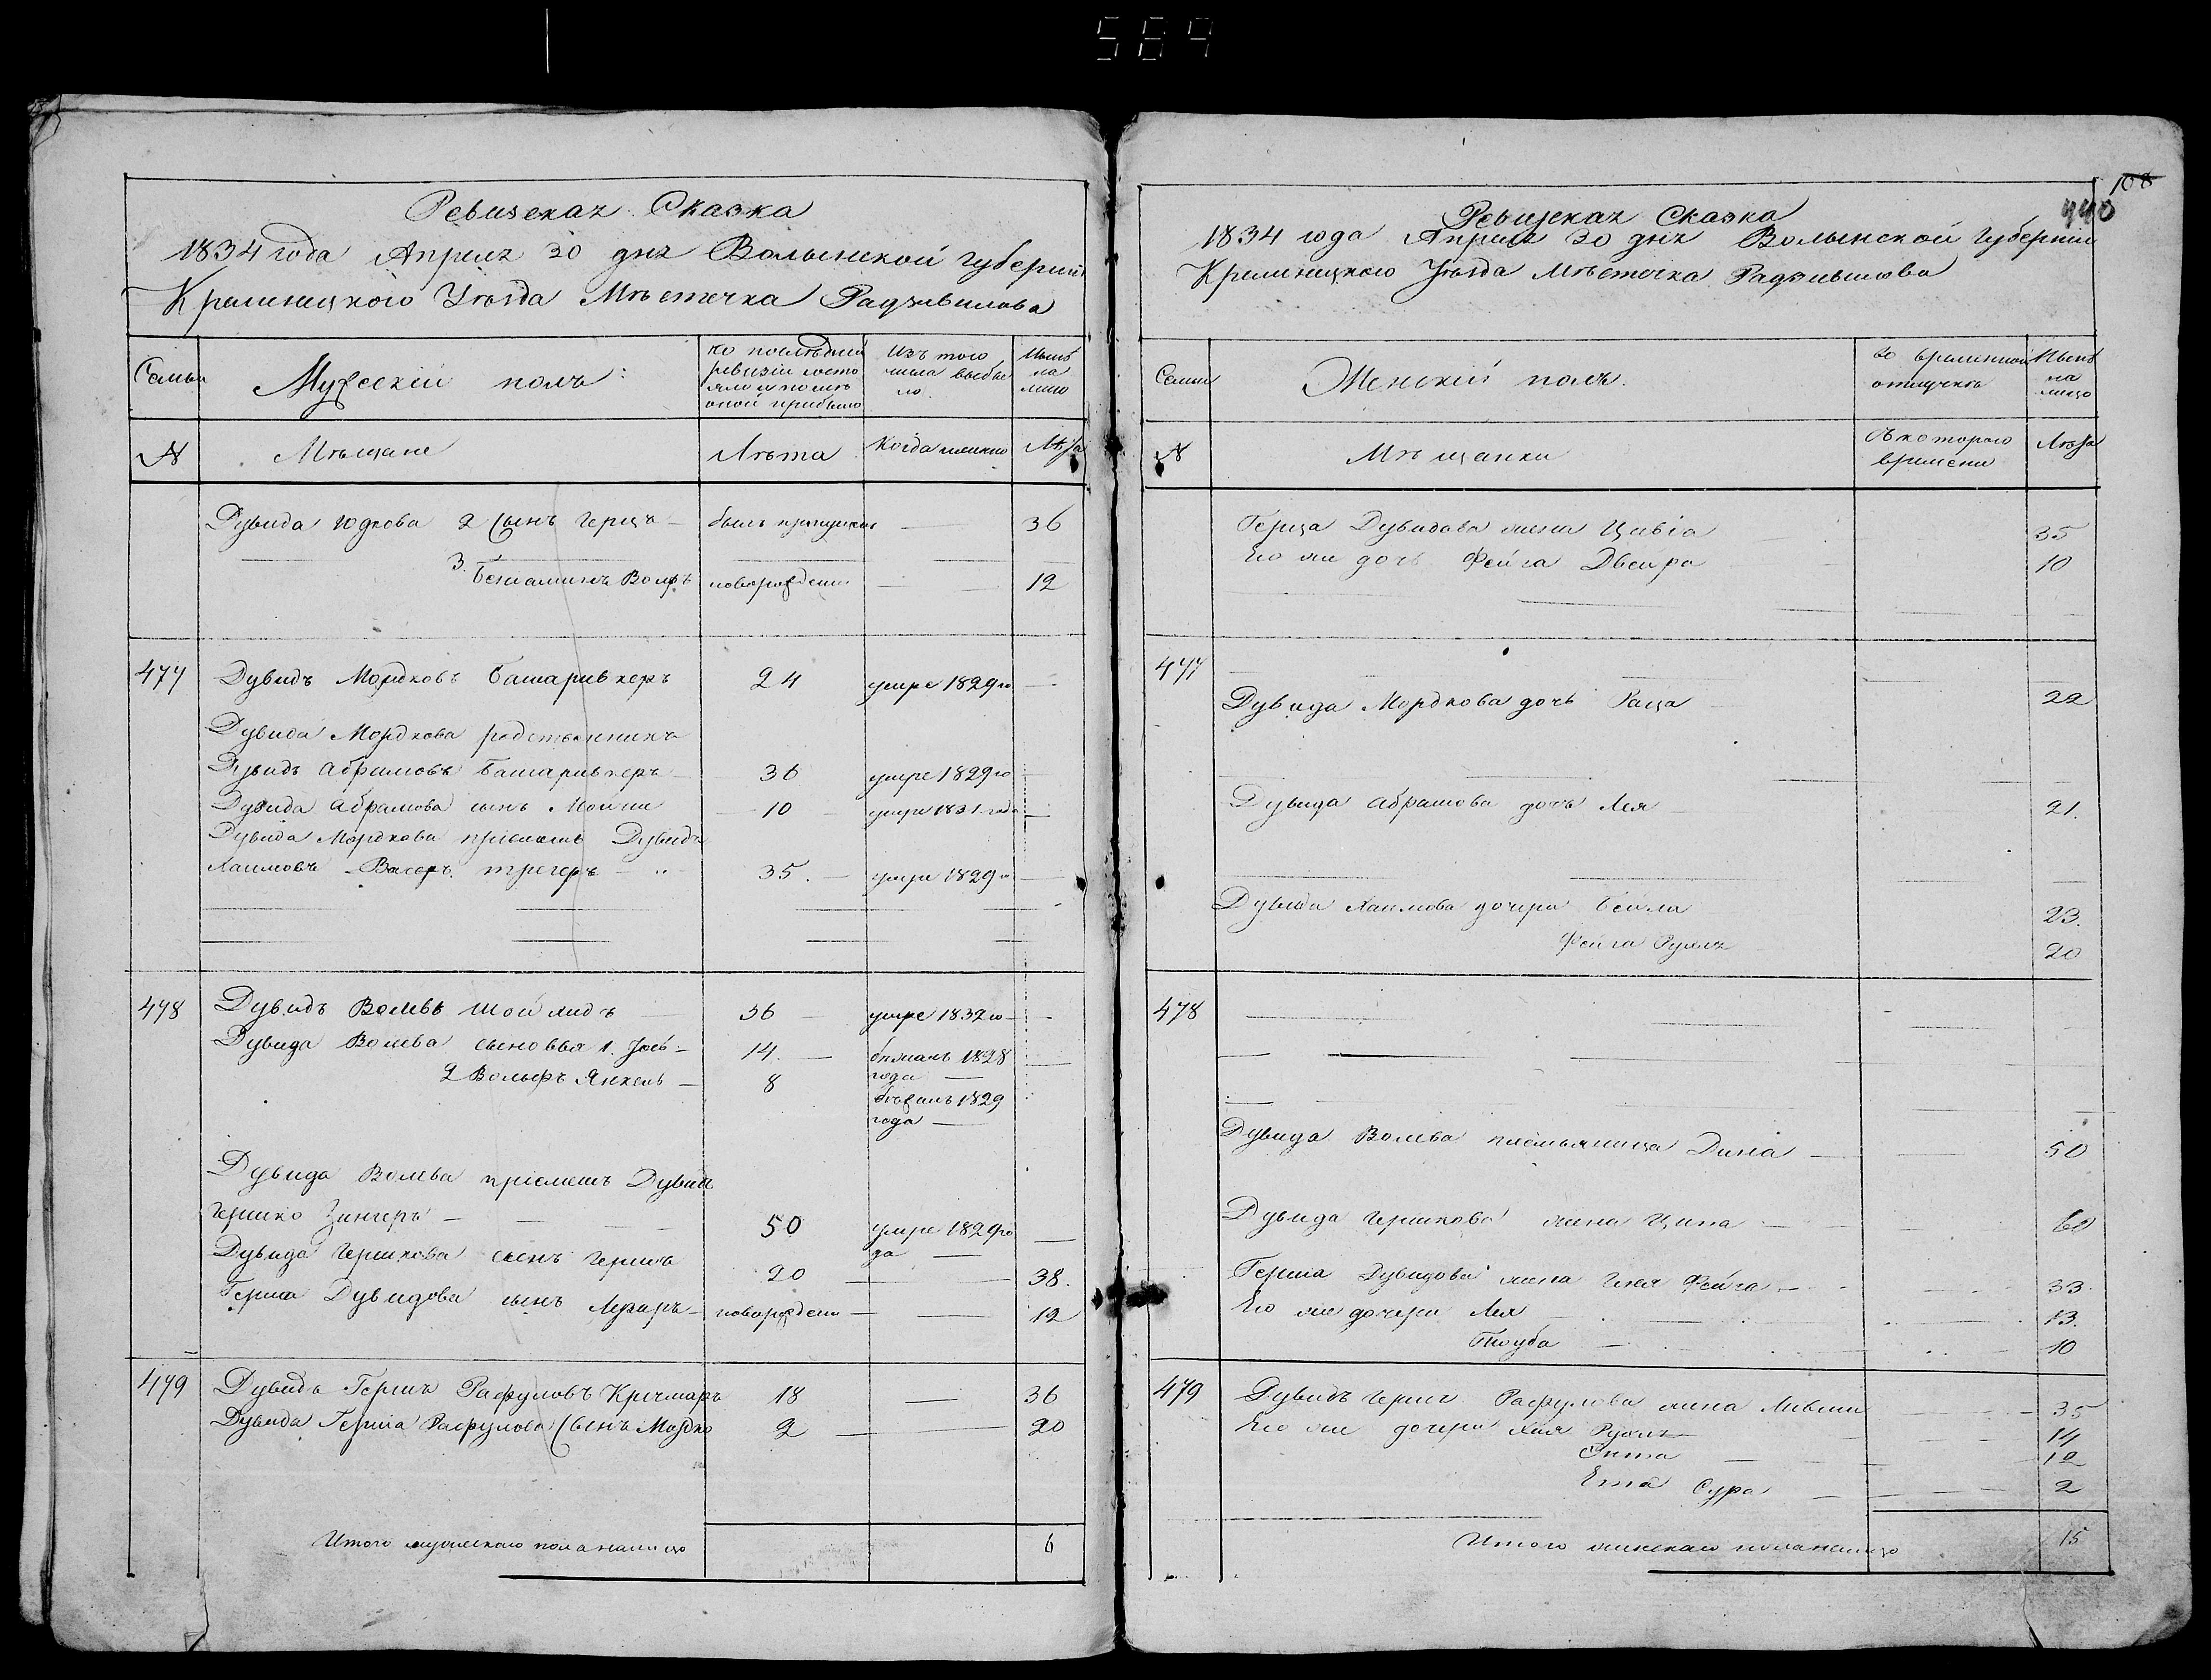 584
Ревизская Сказка
1834 года Апреля 30 дня Волынской Губерніи
Кременецкого Уѣзда Мѣстечка Радзивилова
Семьи
Мужескій полъ:
по послѣдней ревизіи состояло и послѣ оной прибыло
Изъ того числа выбыло
Нынѣ на лицо
№
Мѣщане
Лѣта
Когда именно
Лѣта
Дувида Юдкова 2 сынъ Герцъ — былъ пропущенъ — 36
3. Бениаминъ Вольфъ новорожденъ — 12
477 Дувидъ Мордковъ Башаривкеръ 24 умре 1829 го —
Дувида Мордкова родственникъ
Дувидъ Абрамовъ Башаривкеръ — 36 умре 1829 го —
Дувида Абрамова сынъ — 10 — умре 1831 года —
Дувида Мордкова пріемышъ Дувидъ
Хаимовъ Васер трегеръ — 35. — умре 1829 го —
478 Дувидъ Волевъ — 56 — умре 1832 го —
Дувида Волева сыновья 1. — 14. — 1828 года —
2 Вольфъ Янкель — 8 1829 года —
Дувида Волева пріемышъ Дувидъ
Гершко Зингеръ — 50 умре 1829 года —
Дувида Гершкова сынъ Гершъ 20 — 38.
Герша Дувидова сынъ Лейзаръ — новорожденъ — 12
479 Дувидъ Гершъ Рафуловъ Кричмаръ 18 — 36
Дувида Герша Рафулова сынъ Мордко 2 — 20
Итого мужескаго пола налицо 6
108
440
Ревизская Сказка
1834 года Апреля 30 дня Волынской Губерніи
Кременецкого Уѣзда Мѣстечка Радзивилова
Семьи
Женскій полъ.
во временной отлучкѣ
Нынѣ на лицо
№
Мѣщанки
Съ котораго времени
Лѣта
Герца Дувидова жена Цивіа 35
Его же дочь Фейга Двейра 10
477
Дувида Мордкова дочь Раца 22
Дувида Абрамова дочь Лея 21.
Дувида Хаимова дочери Бейла 23.
Фейга Рухля 20
478
Дувида Волева племьяница Дина — 50
Дувида Гершкова жена Ципа — 60
Герша Дувидова жена Фейга — 33.
Его же дочери Лея 13.
Тоуба — 10
479 Дувидъ Герша Рафулова жена — 35
Его же дочери Хая Рухля 14
12
Ента Сура — 2
Итого женскаго пола налицо 15